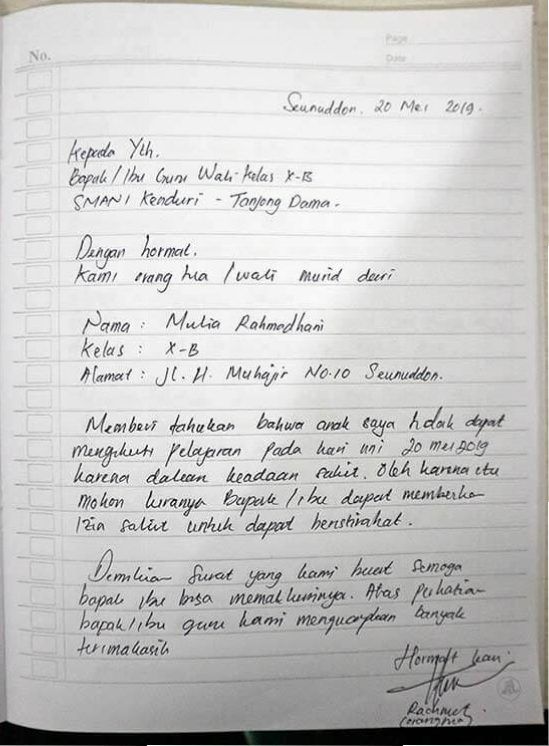 No.
Page
Date
Seunuddon, 20 Mei 2019.
Kepada Yth.
Bapak/Ibu Guru Wali Kelas X-B
SMAN 1 Kenduri - Tanjong Dama.
Dengan hormat.
Kami orang tua /wali murid dari
Nama : Mulia Rahmadhani
Kelas : X-B
Alamat : Jl. H. Muhajir No.10 Seunuddon.
Memberi tahukan bahwa anak saya tidak dapat
mengikuti pelajaran pada hari ini 20 mei 2019
karena dalam keadaan sakit. Oleh karena itu
mohon kiranya Bapak/ibu dapat memberikan
izin sakit untuk dapat beristirahat.
Demikian surat yang kami buat semoga
bapak ibu bisa memakluminya. Atas perhatian
bapak/ibu guru kami mengucapkan banyak
terimakasih
Hormat kami
Rachmat
(orangtua)